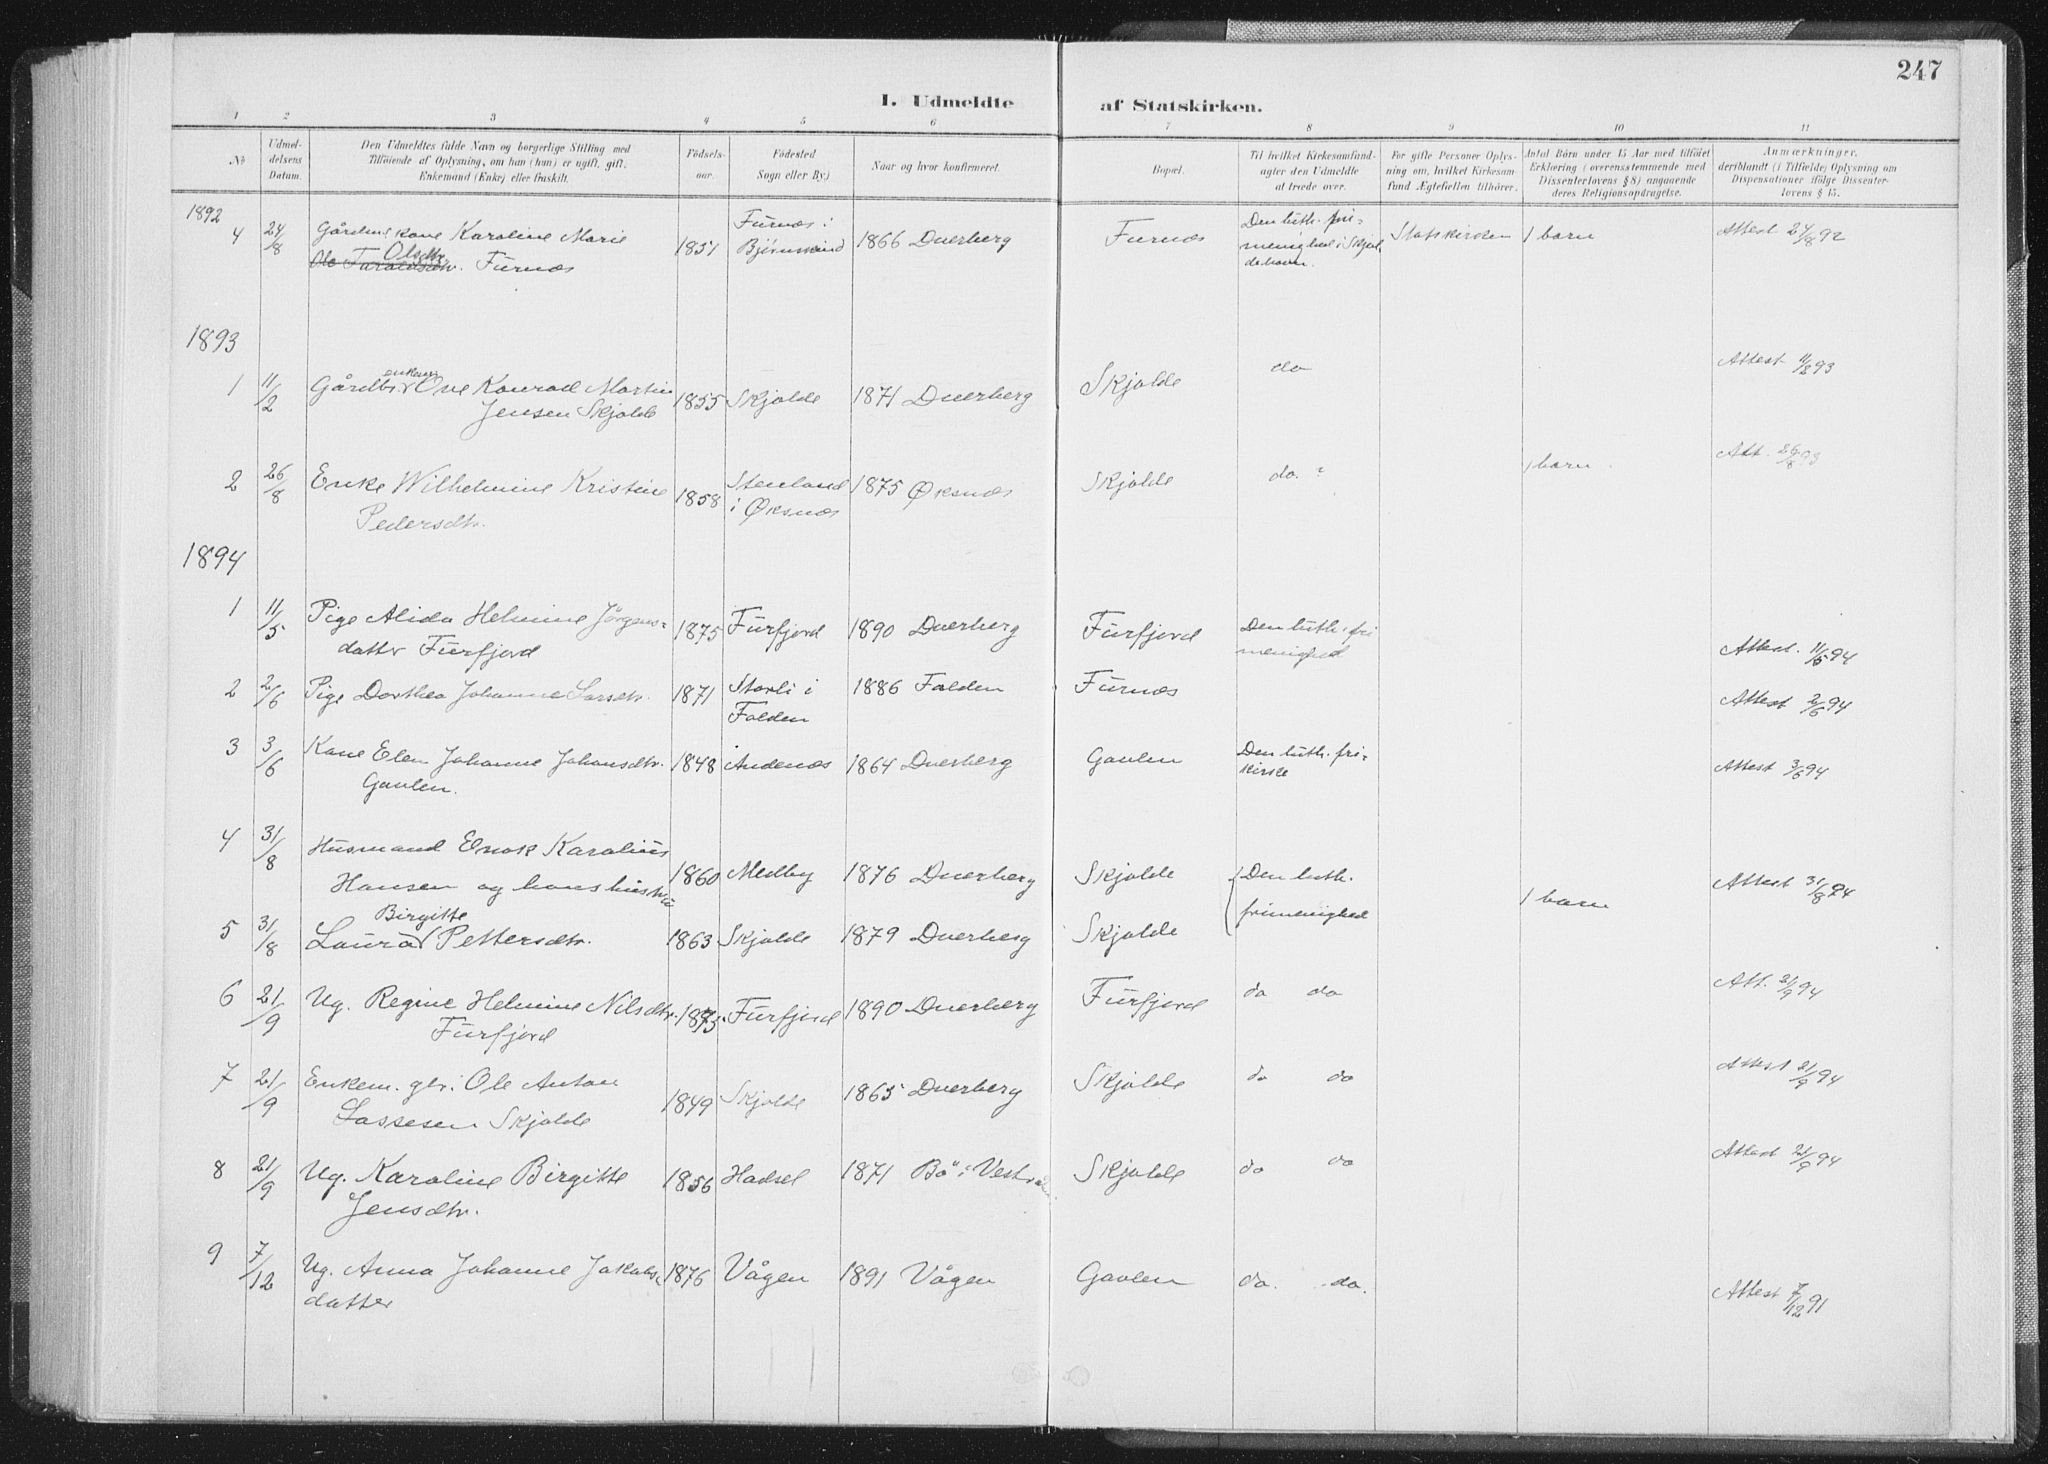 247
I. Udmeldte af Statskirken.
1 2 3 4 5 6 7 8 9 10 11
No
Udmel-
delsens
Datum.
Den Udmeldtes fulde Navn og borgerlige Stilling med
Tilføiende af Oplysning, om han (hun) er ugift, gift,
Enkemand (Enke) eller fraskilt.
Fødsels-
aar.
Fødested
Sogn eller By)
Naar og hvor konfirmeret.
Bopæl.
Til hvilket Kirkesamfund
agter den Udmeldte
at træde over.
For gifte Personer Oplys-
ning om, hvilket Kirkesam
fund Ægtefællen tilhører.
Antal Børn under 15 Aar med tilføiet
Erklæring (overensstemmende med
Dissenterlovens § 8) angaaende
deres Religionsopdragelse.
Anmærkninger.
deriblandt (i Tilfælde) Oplysning om
Dispensationer ifølge Dissenter-
lovens § 15.
1892
4 24/8 Karoline Marie
Olsdtr. Furnæs
1851
Furnæs i
1866 Dverberg
Furnæs
Den luth. fri-
menighed i
Statskirken
1 barn
Attest 24/8 92
1893
1 11/2 Gårdbr. enkem. Ove Konrad Martin
Jensen Skjolde
1855 Skjolde 1871 Dverberg
Skjolde
do
Attest 11/2 93
2 26/8 Enke Wilhelmine Kristine
Pedersdtr.
1858
Stenland
i Øksnæs
1875 Øksnæs
Skjolde
do.
1 barn.
Att. 26/8 93
1894
1 11/5 Pige Alida Helmine Jørgens-
datter Furfjord
1875 Furfjord 1890 Dverberg
Furfjord
Den luth. fri
menighed
Attest. 11/5 94
2 2/6 Pige Dorthea Johanne Larsdtr.
1871
Storli i
Folden
1886 Folden
Furnæs
Attest 2/6 94
3 3/6 Kone Elen Johanne Johansdtr.
Gavlen.
1848 Andenæs 1864 Dverberg
Gavlen
Den luth. fri-
kirke
Attest 3/6 94
4 31/8 Husmand Enok Karolius
Hansen og hans hustru
1860 Medby 1876 Dverberg
Skjolde
Den luth.
frimenighed
1 barn
Attest 31/8 94
5 31/8 Laura Birgitte Pettersdtr.
1863 Skjolde 1879 Dverberg
Skjolde
6 21/9 Ug. Regine Helmine Nilsdtr.
Furfjord
Furfjord 1890 Dverberg
Furfjord
do do
Att. 21/9 94
7 21/9 Enkem. gbr. Ole Anton
Lassesen Skjolde
1849 Skjolde 1865 Dverberg
Skjolde
do do
Attest 21/9 94
8 21/9 Ug. Karoline Birgitte
Jensdtr.
1856 Hadsel 1871 Bø i
Skjolde
do do
Attest 21/9 94
9 7/12 Ug. Anna Johanne Jakobs-
datter
1876 Vågen 1891 Vågen
Gavlen
do. do.
Attest 7/12 91